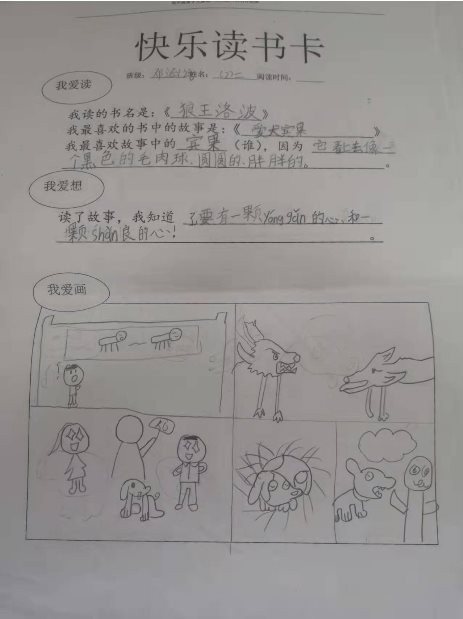 快乐读书卡
班级： 姓名： 阅读时间：
我爱读
我读的书名是：《 狼王洛波 》
我最喜欢的书中的故事是：《 宾果 》
我最喜欢故事中的 宾果 （谁），因为 它 起来像一
个黑色的毛肉球，圆圆的、胖胖的。
我爱想
读了故事，我知道 了要有一颗yǒng gǎn的心、和一
颗shàn良的心！
我爱画